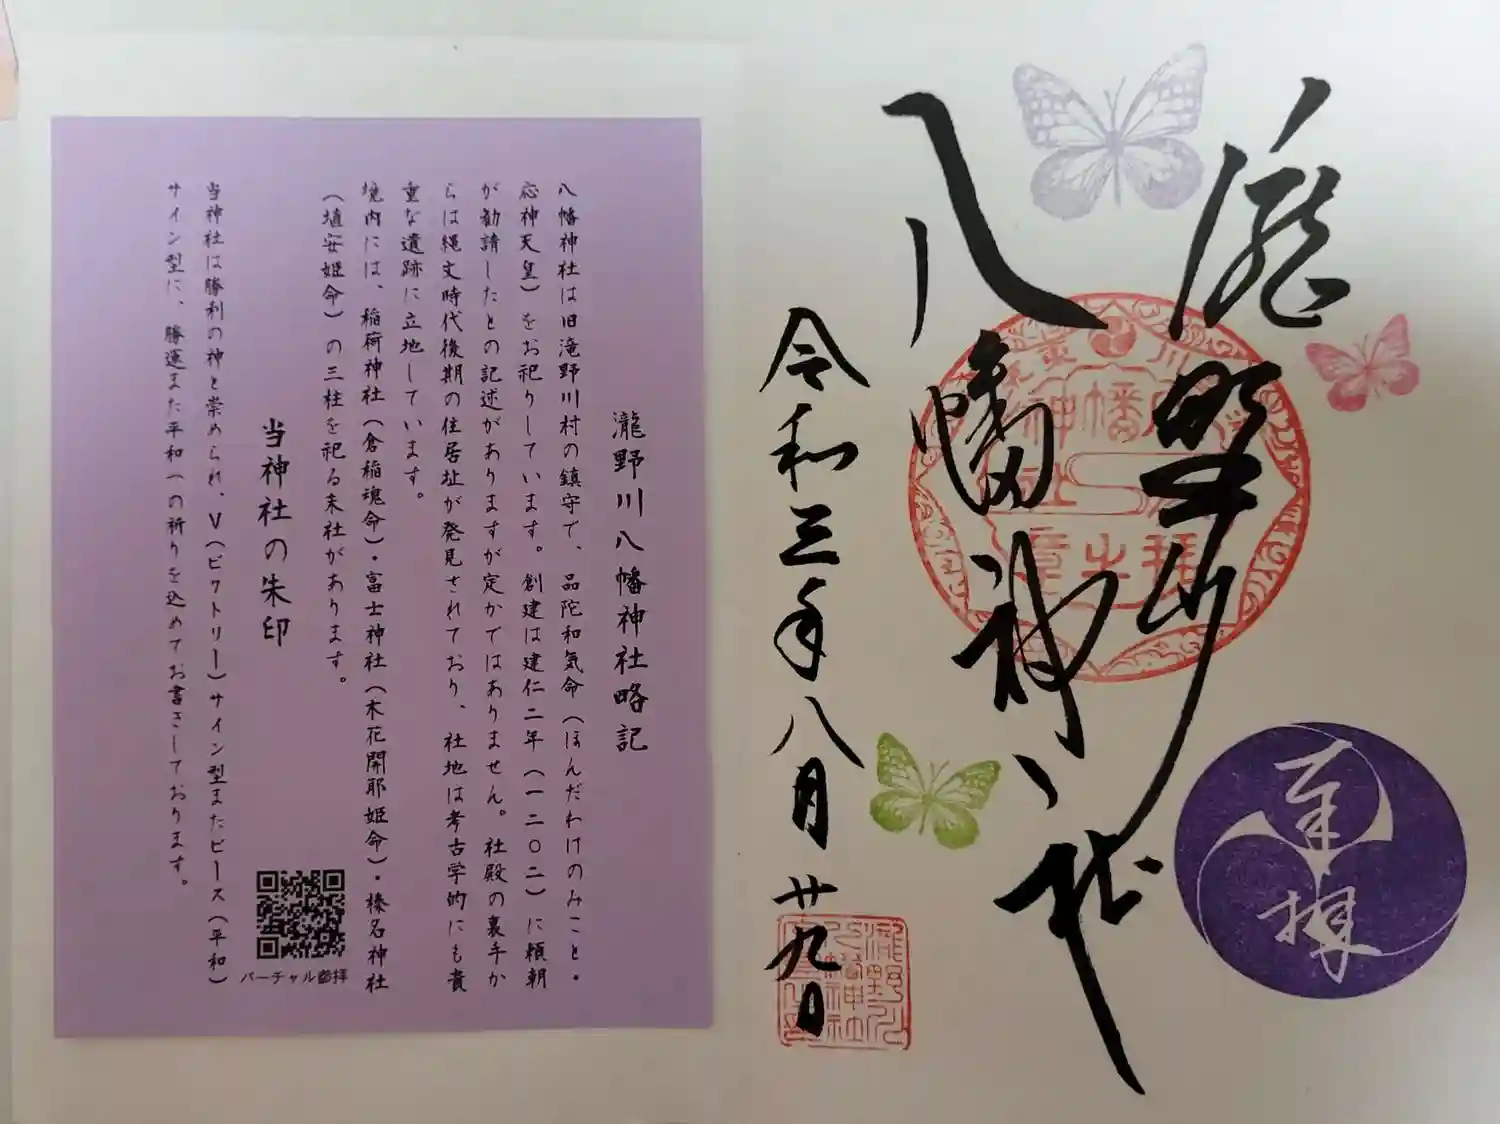 瀧野川
八幡神社
令和三年八月廿九日
奉拝
瀧野川八幡神社略記
八幡神社は旧滝野川村の鎮守で、品陀和気命（ほんだわけのみこと・
応神天皇）をお祀りしています。創建は建仁二年（一二〇二）に頼朝
が勧請したとの記述がありますが定かではありません。社殿の裏手か
らは縄文時代後期の住居址が発見されており、社地は考古学的にも貴
重な遺跡に立地しています。
境内には、稲荷神社（倉稲魂命）・富士神社（木花開耶姫命）・榛名神社
（埴安姫命）の三柱を祀る末社があります。
当神社の朱印
当神社は勝利の神と崇められ、V（ビクトリー）サイン型またピース（平和）
サイン型に、勝運また平和への祈りを込めてお書きしております。
バーチャル参拝